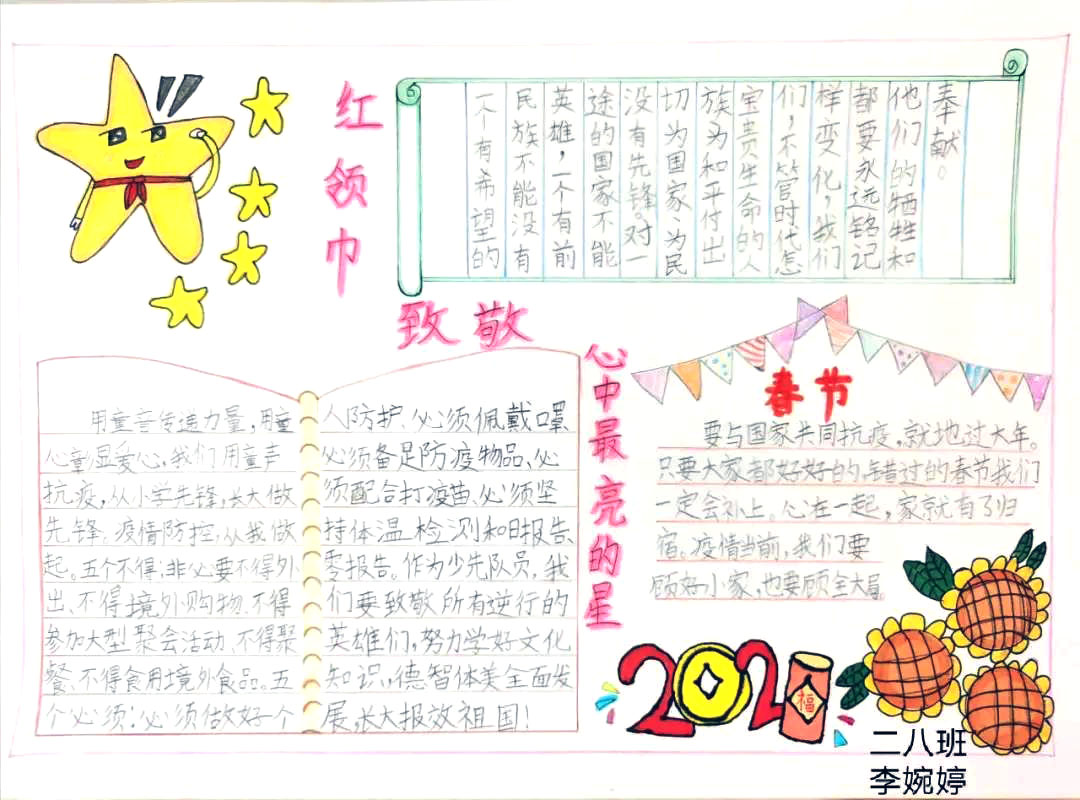 红领巾
致敬
心中最亮的星
一个有希望的
民族不能没有
英雄，一个有前
途的国家不能
没有先锋。对一
切为国家、为民
族为和平付出
宝贵生命的人
们，不管时代怎
样变化，我们
都要永远铭记
他们的牺牲和
奉献。
用童言传递力量，用童
心彰显爱心，我们用童声
抗疫，从小学先锋，长大做
先锋。疫情防控，从我做
起。五个不得：非必要不得外
出、不得境外购物、不得
参加大型聚会活动、不得聚
餐、不得食用境外食品。五
个必须：必须做好个
人防护、必须佩戴口罩、
必须备足防疫物品、必
须配合打疫苗、必须坚
持体温检测和日报告、
零报告。作为少先队员，我
们要致敬所有逆行的
英雄们，努力学好文化
知识，德智体美全面发
展，长大报效祖国！
春节
要与国家共同抗疫，就地过大年。
只要大家都好好的，错过的春节我们
一定会补上。心在一起，家就有了归
宿。疫情当前，我们要
顾好小家，也要顾全大局。
2021
福
二八班
李婉婷